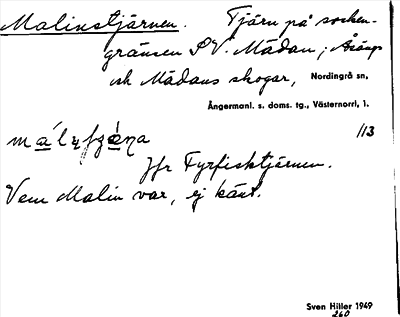 Malinstjärnen. Tjärn på socken-
gränsen S.V. Mädan; Åsäng
och Mädans skogar, Nordingrå sn,
Ångermanl. s. doms. tg., Västernorrl. l.
113
Jfr Fyrfisktjärnen.
Vem Malin var, ej känt.
Sven Hiller 1949
260